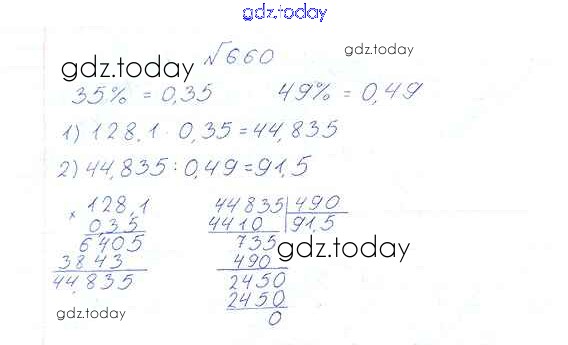 gdz.today
√660
gdz.today
gdz.today
35% = 0,35 49% = 0,49
1) 128,1 · 0,35 = 44,835
2) 44,835 : 0,49 = 91,5
× 128,1
0,35
6405
3843
44,835
44835 | 490
4410 91,5
735
490
2450
2450
0
gdz.today
gdz.today